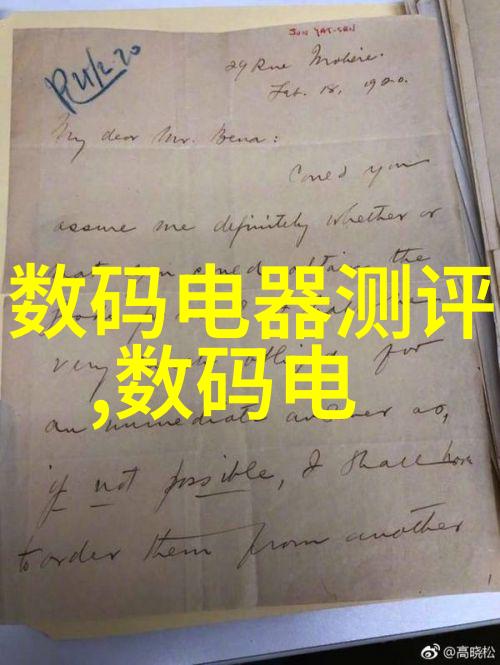 SUN YAT-SEN
R 21/2.20
29 Rue Molière.
Feb. 18, 1920.
My dear Mr. Bena:
Could you
assure me definitely whether or
数码电器测评
the
,数码电
very for
an immediate answer as,
if not possible, I shall have
to order them from another
@高晓松